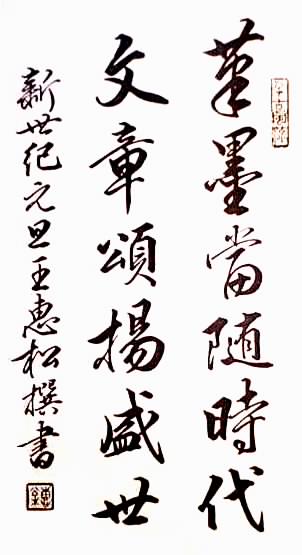 筆墨當随時代
文章頌揚盛世
新世纪元旦王惠松撰書